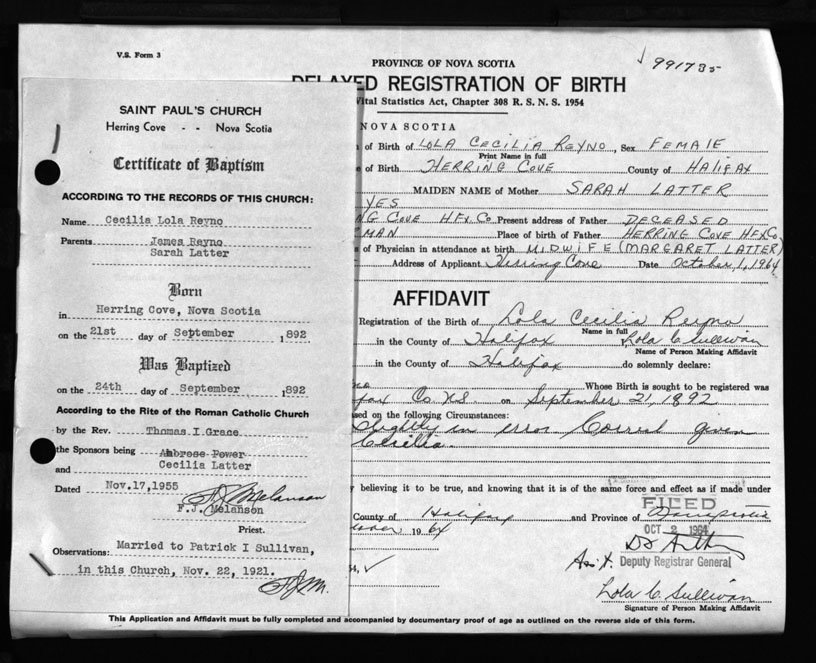 V.S. Form 3
991735
PROVINCE OF NOVA SCOTIA
DELAYED REGISTRATION OF BIRTH
Vital Statistics Act, Chapter 308 R. S. N. S. 1954
NOVA SCOTIA
of Birth of LOLA CECILIA REYNO, Sex FEMALE
Print Name in full
of Birth HERRING COVE County of HALIFAX
MAIDEN NAME of Mother SARAH LATTER
YES
NG COVE HFX. CO Present address of Father DECEASED
MAN Place of birth of Father HERRING COVE HFX CO.
of Physician in attendance at birth MIDWIFE (MARGARET LATTER)
Address of Applicant Herring Cove Date October 1, 1964
AFFIDAVIT
Registration of the Birth of Lola Cecilia Reyno
Name in full
in the County of Halifax, Lola C. Sullivan
Name of Person Making Affidavit
in the County of Halifax do solemnly declare:
Whose Birth is sought to be registered was
fax Co. N.S. on September 21, 1892
sed on the following Circumstances:
Slightly in error Correct given
Cecilia.
y believing it to be true, and knowing that it is of the same force and effect as if made under
County of Halifax and Province of
1964
FILED
OCT 2 1964
Asst. Deputy Registrar General
Lola C. Sullivan
Signature of Person Making Affidavit
This Application and Affidavit must be fully completed and accompanied by documentary proof of age as outlined on the reverse side of this form.
SAINT PAUL'S CHURCH
Herring Cove - - Nova Scotia
Certificate of Baptism
ACCORDING TO THE RECORDS OF THIS CHURCH:
Name Cecilia Lola Reyno
Parents James Reyno
Sarah Latter
Born
in Herring Cove, Nova Scotia
on the 21st day of September, 1892
Was Baptized
on the 24th day of September, 1892
According to the Rite of the Roman Catholic Church
by the Rev. Thomas.I.Grace
the Sponsors being Ambrose Power
and Cecilia Latter
Dated Nov.17,1955
F.J. Melanson
F.J. Melanson
Priest.
Observations: Married to Patrick I Sullivan,
in this Church, Nov. 22, 1921.
F.J.M.